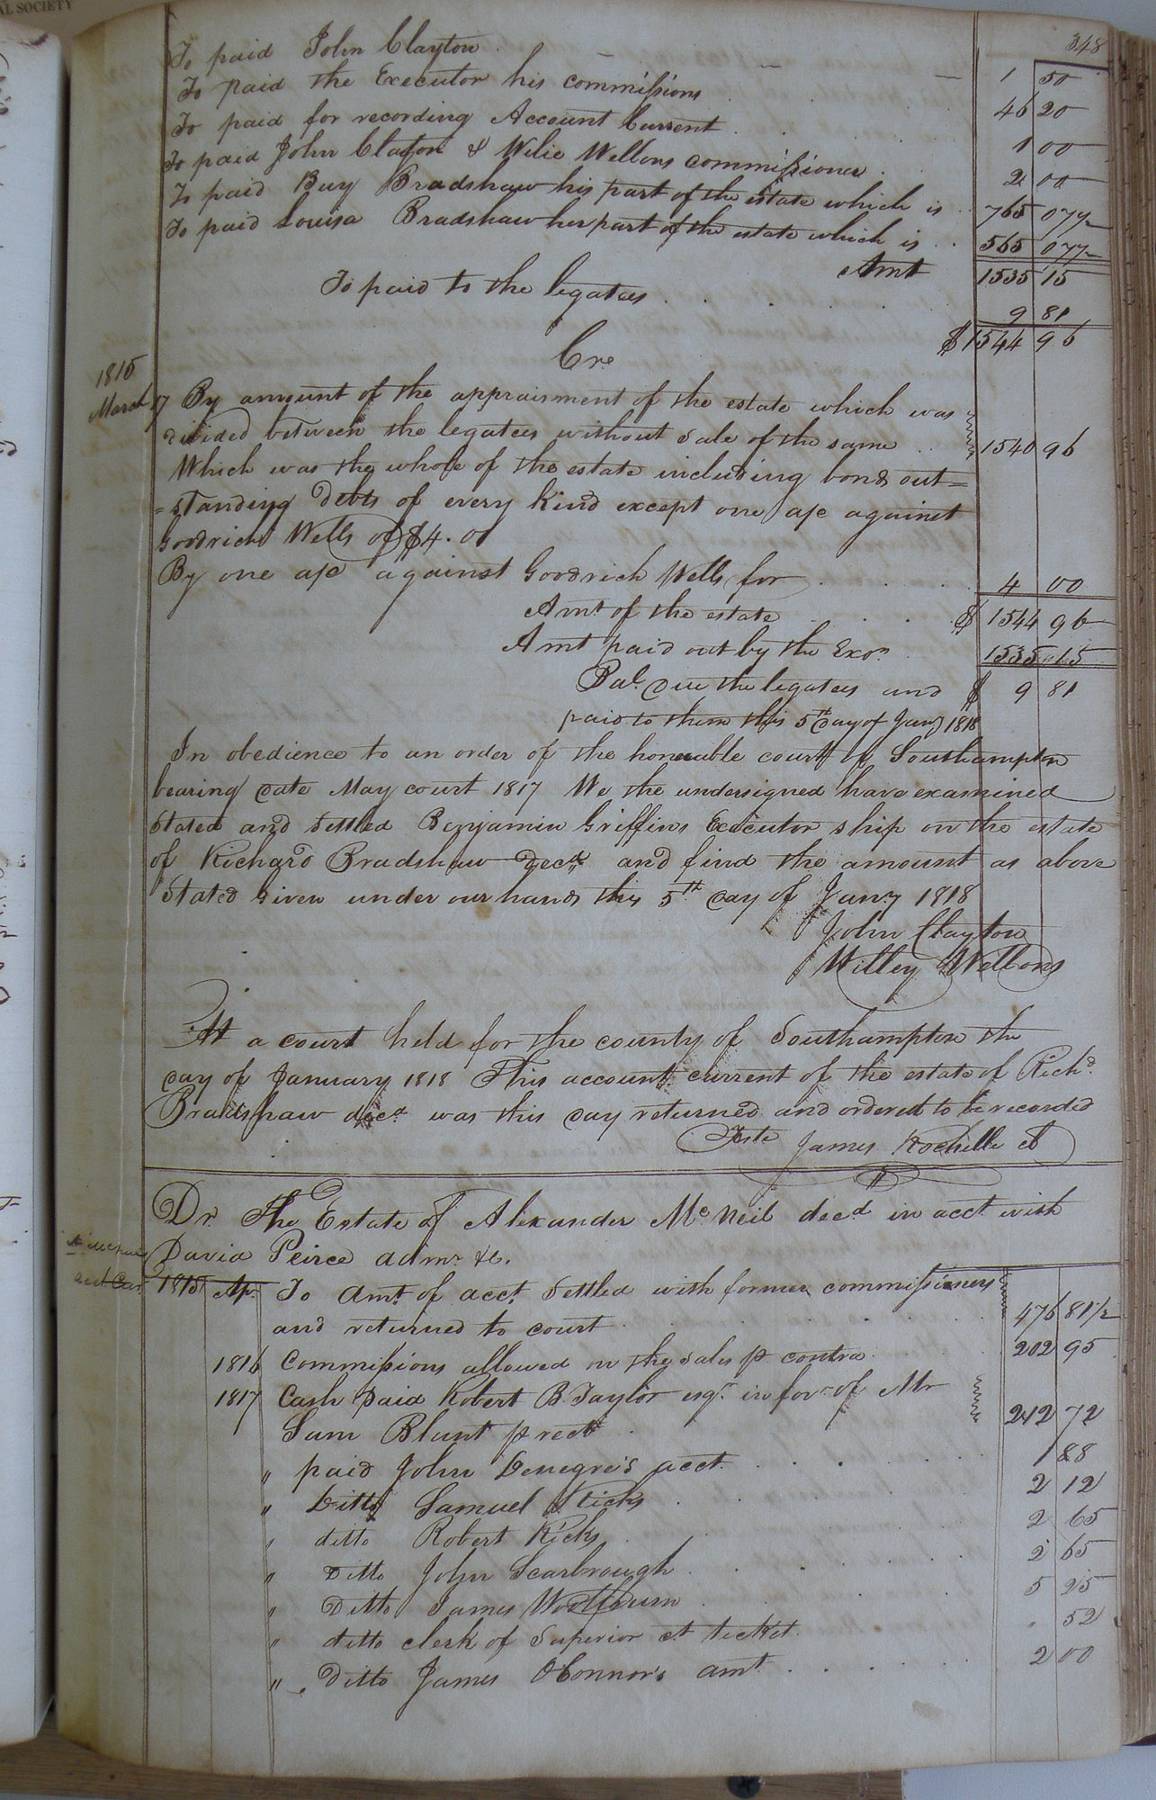 AL SOCIETY
348
To paid John Clayton 1 50
To paid the Executor his commissions 46 20
To paid for recording Account Current 1 00
To paid John Clayton & Wilie Wellons commissioner 2 00
To paid Bury Bradshaw his part of the estate which is 765 07½
To paid Louisa Bradshaw her part of the estate which is 565 07½
Amt 1535 15
To paid to the legatees 9 81
$1544 96
Cre
1816
March 7 By amount of the appraisment of the estate which was
divided between the legatees without sale of the same 1540 96
Which was the whole of the estate including bonds out=
=standing Debts of every kind except one a/c against
Goodrich Wells of $4.00
By one a/c against Goodrich Wells for 4 00
Amt of the estate $ 1544 96
Amt paid out by the Exor 1535.15
Bal. due the legatees and $ 9 81
paid to them this 5th day of Jany 1818
In obedience to an order of the honorable court of Southampton
bearing date May court 1817 We the undersigned have examined
Stated and Settled Benjamin Griffins Executor ship on the estate
of Richard Bradshaw Decd and find the amount as above
Stated Given under our hands this 5th day of Jany 1818
John Clayton
Willey Wellons
At a court held for the county of Southampton the
day of January 1818 This account current of the estate of Richd
Bradshaw decd was this day returned and ordered to be recorded
Teste James Rochelle Ct
Dr. The Estate of Alexander McNeil decd in acct with
David Peirce admr &c.
1815 Apr To Amt of acct Settled with former commissioners
and returned to court 476 81½
1816 Commissions allowed on the sales pr contra 202 95
1817 Cash paid Robert B. Taylor esqr in favr of Mr
Sam Blunt pr rect 242 72
" paid John Denegre's acct 1 88
" Ditto Samuel Hicks 2 12
" ditto Robert Ricks 2 65
" Ditto John Scarbrough 2 65
" Ditto James 5 25
" ditto clerk of Superior Ct ticket . 52
" Ditto James OConnor's amt 2 00